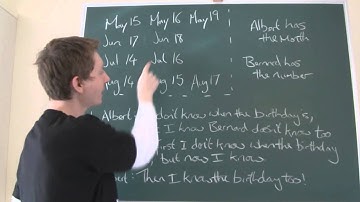 May 15 May 16 May 19
Albert has
the Month
Jun 17 Jun 18
Jul 14 Jul 16
Bernard has
the number
Aug 14 Aug 15 Aug 17
Albert: I don't know when the birthday is,
I know Bernard doesn't know too
first I don't know when the birthday
but now I know
Then I know the birthday too!